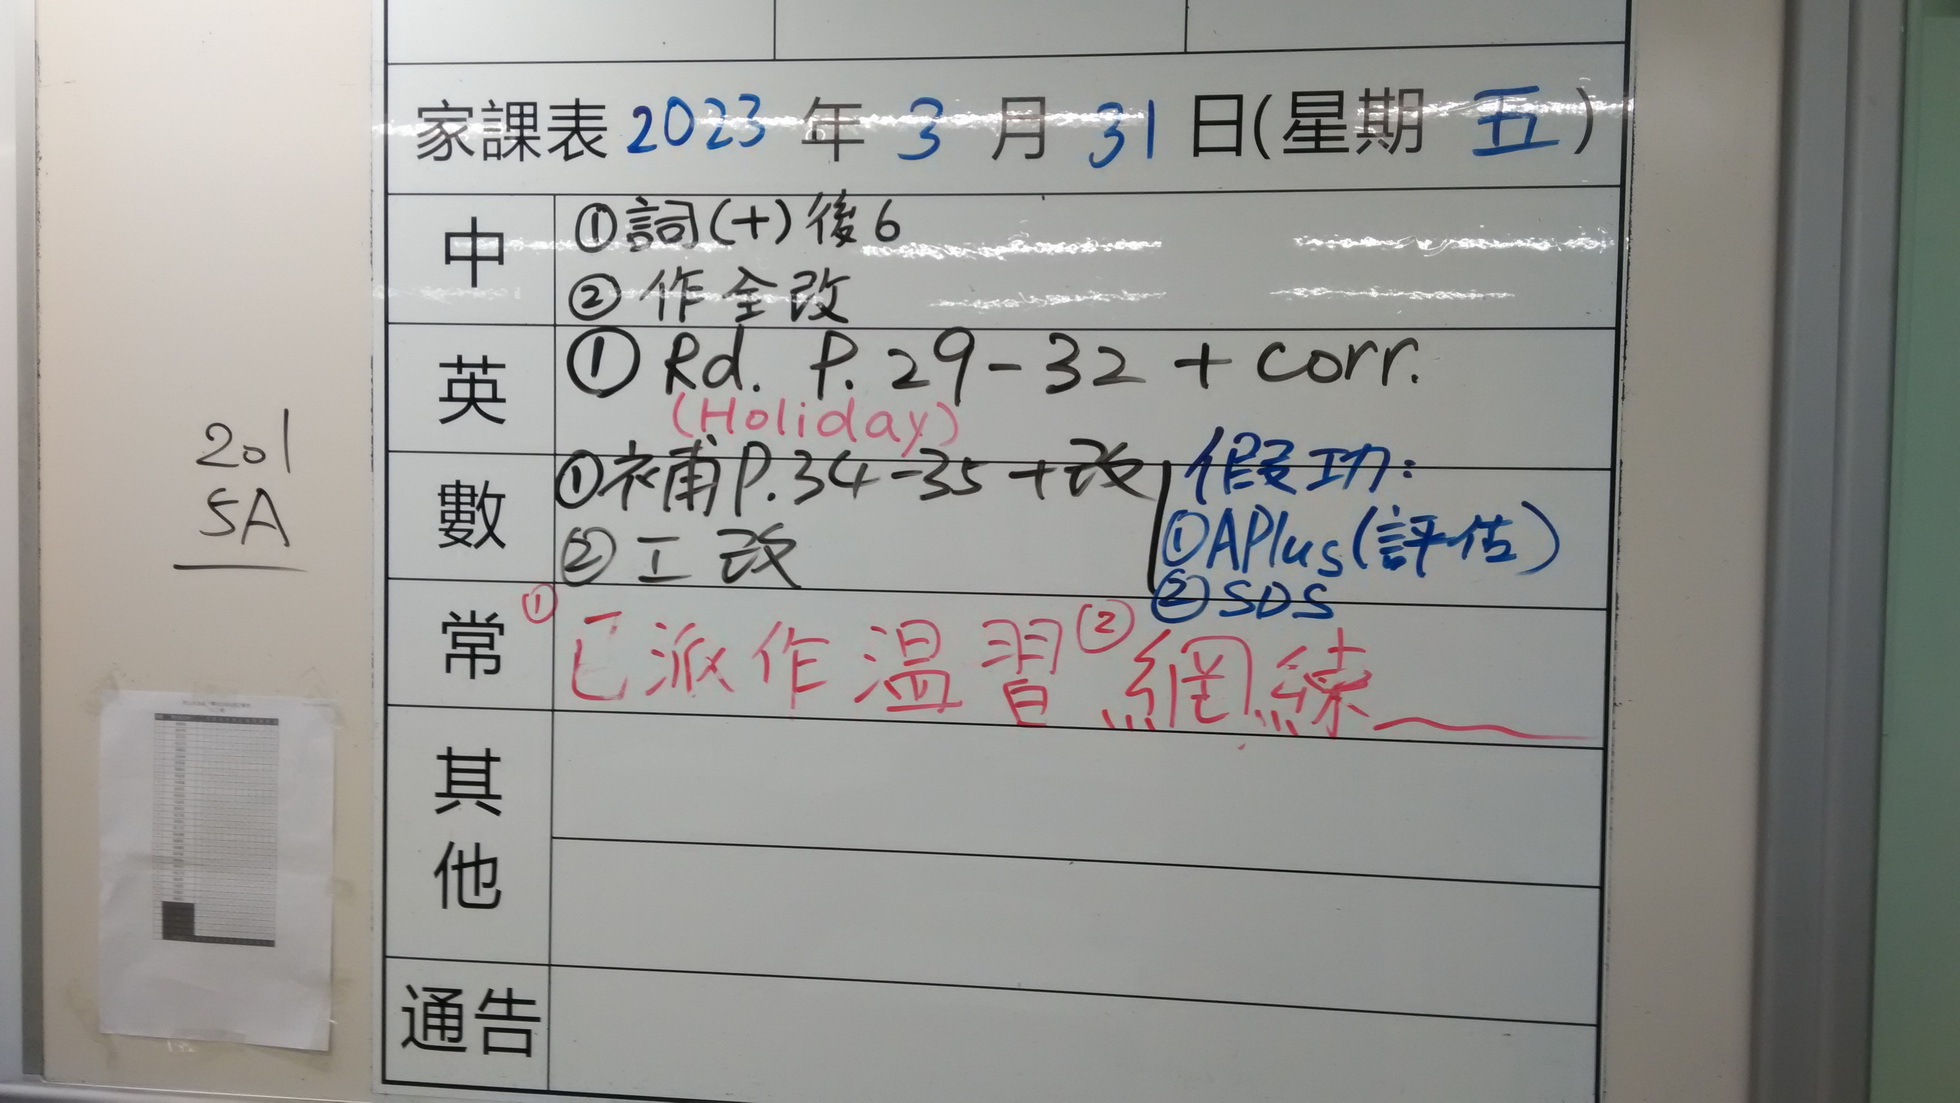 家課表 2023 年 3 月 31 日(星期 五)
中
①詞(十)後6
②作全改
英
① Rd. P. 29-32 + corr.
(Holiday)
數
①補P.34-35+改
②工改
假功:
①APlus(評估)
②SDS
常
①已派作溫習②網練
其他
通告
201
5A